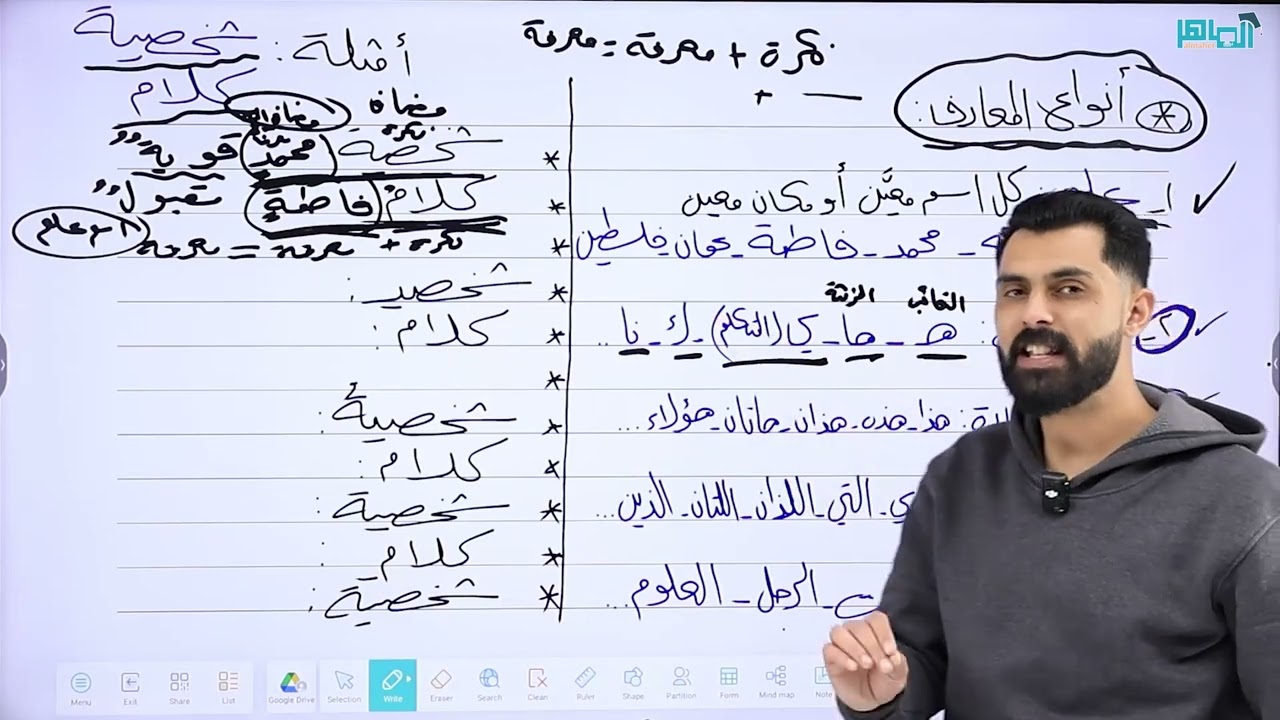 الماهر
almaher
نكرة + معرفة = معرفة
+ —
* أنواع المعارف:
١- كل اسم معيَّن أو مكان معين
- محمد - فاطمة - عمان فلسطين
الغائب الغائبة
٢- : ه - ها - ي (المتكلم) - ك - نا ...
: هذا - هذه - هذان - هاتان - هؤلاء ...
- التي - اللذان - اللتان - الذين ...
- الرجل - العلوم ...
أمثلة: شخصية
كلام
مضاف مضاف إليه
نكرة
* شخصية محمد قوية"
* كلام فاطمة مقبول"
* نكرة + معرفة = معرفة
* شخصية:
* كلام:
*
* شخصية:
* كلام:
* شخصية:
* كلام:
* شخصية:
Menu Exit Share List Google Drive Selection Write Eraser Search Clean Ruler Shape Partition Form Mind map Note